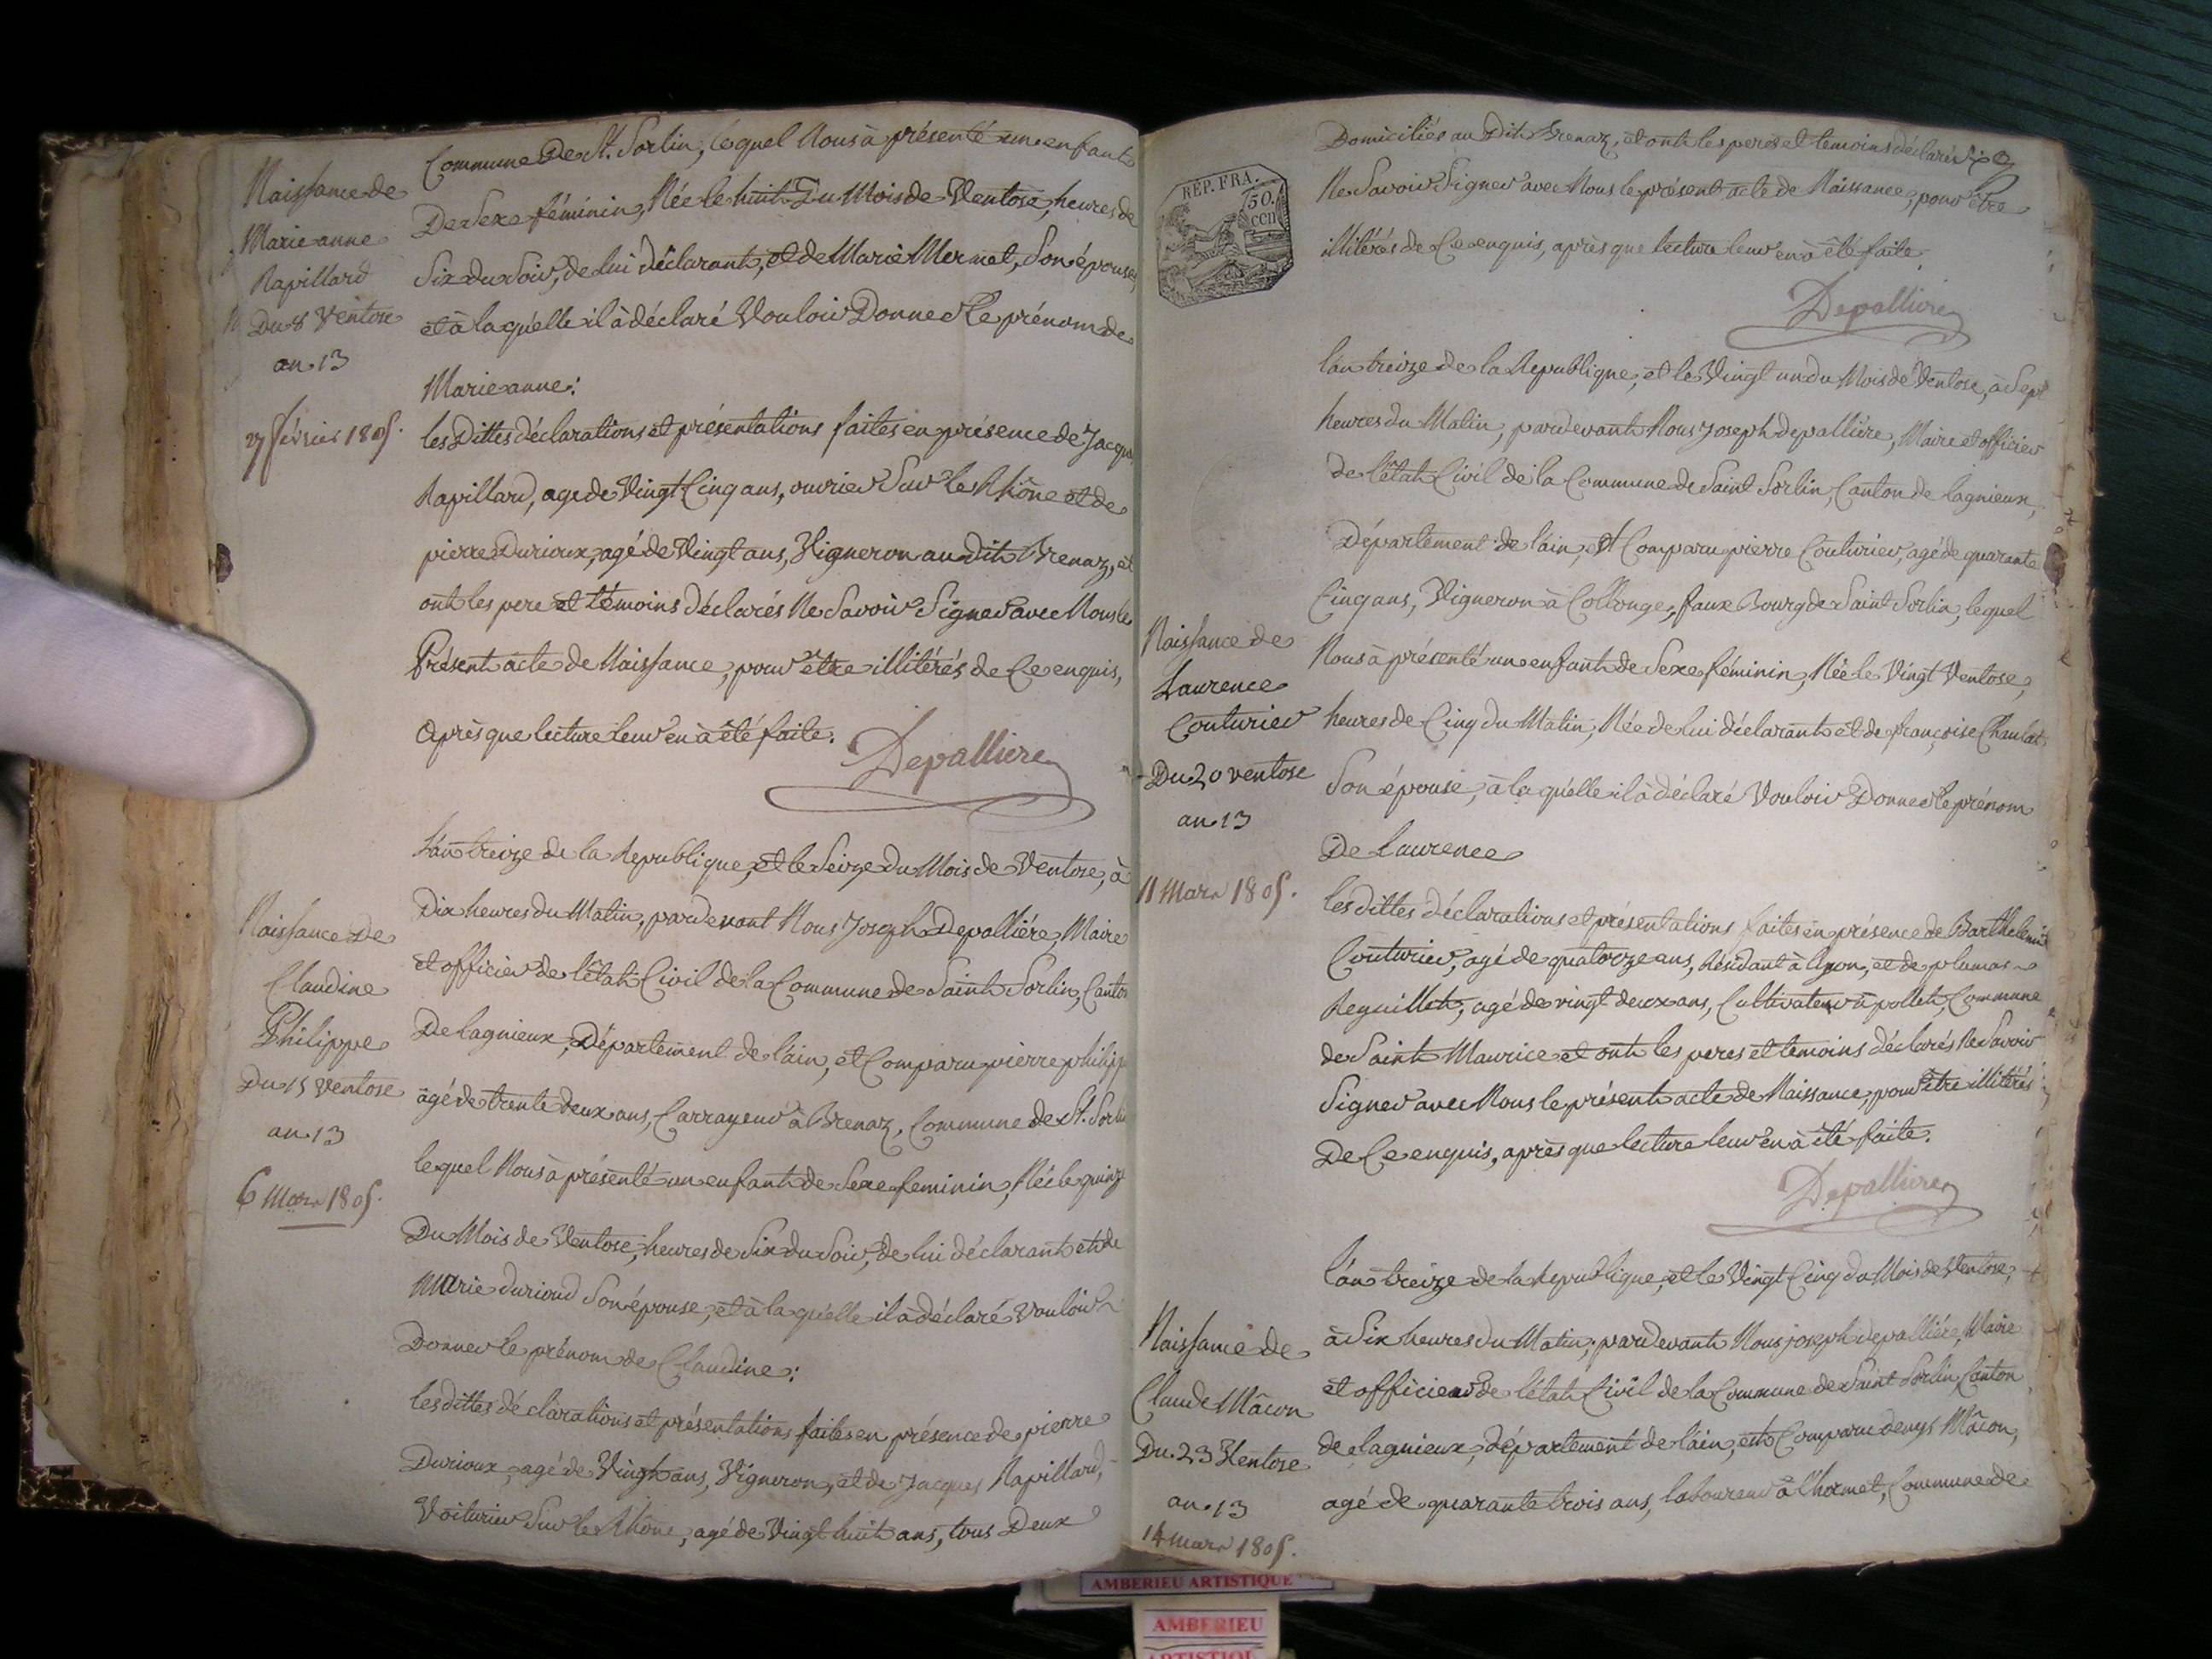 Commune De St. Sorlin, lequel Nous à présenté un enfant
De Sexe féminin, Née le huit Du Mois de Ventose, heures de
Six du Soir, de lui déclarant, et de Marie Mermet, Son épouse,
et à laquélle il à déclaré Vouloir Donner le prénom de
Marie anne:
les Dittes déclarations et présentations faites en présence de Jacques
Rapillard, agé de Vingt Cinq ans, ouvrier Sur le Rhône et de
pierre Durioux, agé de Vingt ans, Vigneron au dit Brenaz, et
ont les pere et témoins déclarés Ne Savoir Signer avec Nous le
Présent acte de Naissance, pour être illitérés de Ce enquis,
après que lecture leur en à été faite.
Depalliere
Naissance de
Marie anne
Rapillard
Du 8 Ventose
an 13
27 février 1805.
L'an treize de la Republique, et le Seize du Mois de Ventose, à
Dix heures du Matin, pardevant Nous Joseph Depalliére, Maire
et officier de l'état Civil de la Commune de Saint Sorlin, Canton
De lagnieux, Département de l'ain, et Comparu pierre philippe
agé de trente deux ans, Carrayeur à Brenaz, Commune de St. Sorlin
lequel Nous à présenté un enfant de Sexe feminin, Née le quinze
Du Mois de Ventose, heures de Six du Soir, de lui déclarant et de
Marie durioud Son épouse, et à laquélle il à déclaré Vouloir
Donner le prénom de Claudine:
les dittes déclarations et présentations faites en présence de pierre
Durioux, agé de Vingt ans, Vigneron, et de Jacques Rapillard,
Voiturier Sur le Rhône, agé de Vingt huit ans, tous Deux
Naissance De
Claudine
Philippe
Du 15 Ventose
an 13
6 Mars 1805.
REP. FRA.
50.
cen
Domiciliés au Dit Brenaz, et ont les peres et temoins déclarés
Ne Savoir Signer avec Nous le présent acte de Naissance, pour être
illitérés de Ce enquis, après que lecture leur en à été faite.
Depalliere
l'an treize de la Republique, et le Vingt un du Mois de Ventose, à Sept
heures du Matin, pardevant Nous Joseph depalliére, Maire et officier
de l'état Civil de la Commune de Saint Sorlin, Canton de lagnieux,
Département de l'ain, est Comparu pierre Couturier, agé de quarante
Cinq ans, Vigneron à Collonges, faux Bourg de Saint Sorlin, lequel
Nous à présenté un enfant de Sexe féminin, Née le Vingt Ventose,
heures de Cinq du Matin, Née de lui déclarant et de françoise Chanlat
Son épouse, à laquélle il à déclaré Vouloir Donner le prénom
De Laurence
les dittes déclarations et présentations faites en présence de Barthelemi
Couturier, agé de quatorze ans, Résidant à lyon, et de plumas
Reguillet, agé de vingt deux ans, Cultivateur à pollet, Commune
de Saint Maurice et ont les peres et temoins déclarés Ne Savoir
Signer avec Nous le présent acte de Naissance, pour être illitérés
De Ce enquis, après que lecture leur en à été faite.
Depalliere
Naissance de
Laurence
Couturier
Du 20 ventose
an 13
11 Mars 1805.
l'an treize de la Republique, et le Vingt Cinq du Mois de Ventose,
à Six heures du Matin, pardevant Nous joseph depalliére, Maire
et officier de l'état Civil de la Commune de Saint Sorlin, Canton
de lagnieux, département de l'ain, est Comparu denys Mâcon,
agé de quarante trois ans, laboureur à l'hormet, Commune de
Naissance de
Claude Mâcon
Du 23 Ventose
an 13
14 mars 1805.
AMBERIEU ARTISTIQUE
AMBERIEU
ARTISTIQUE